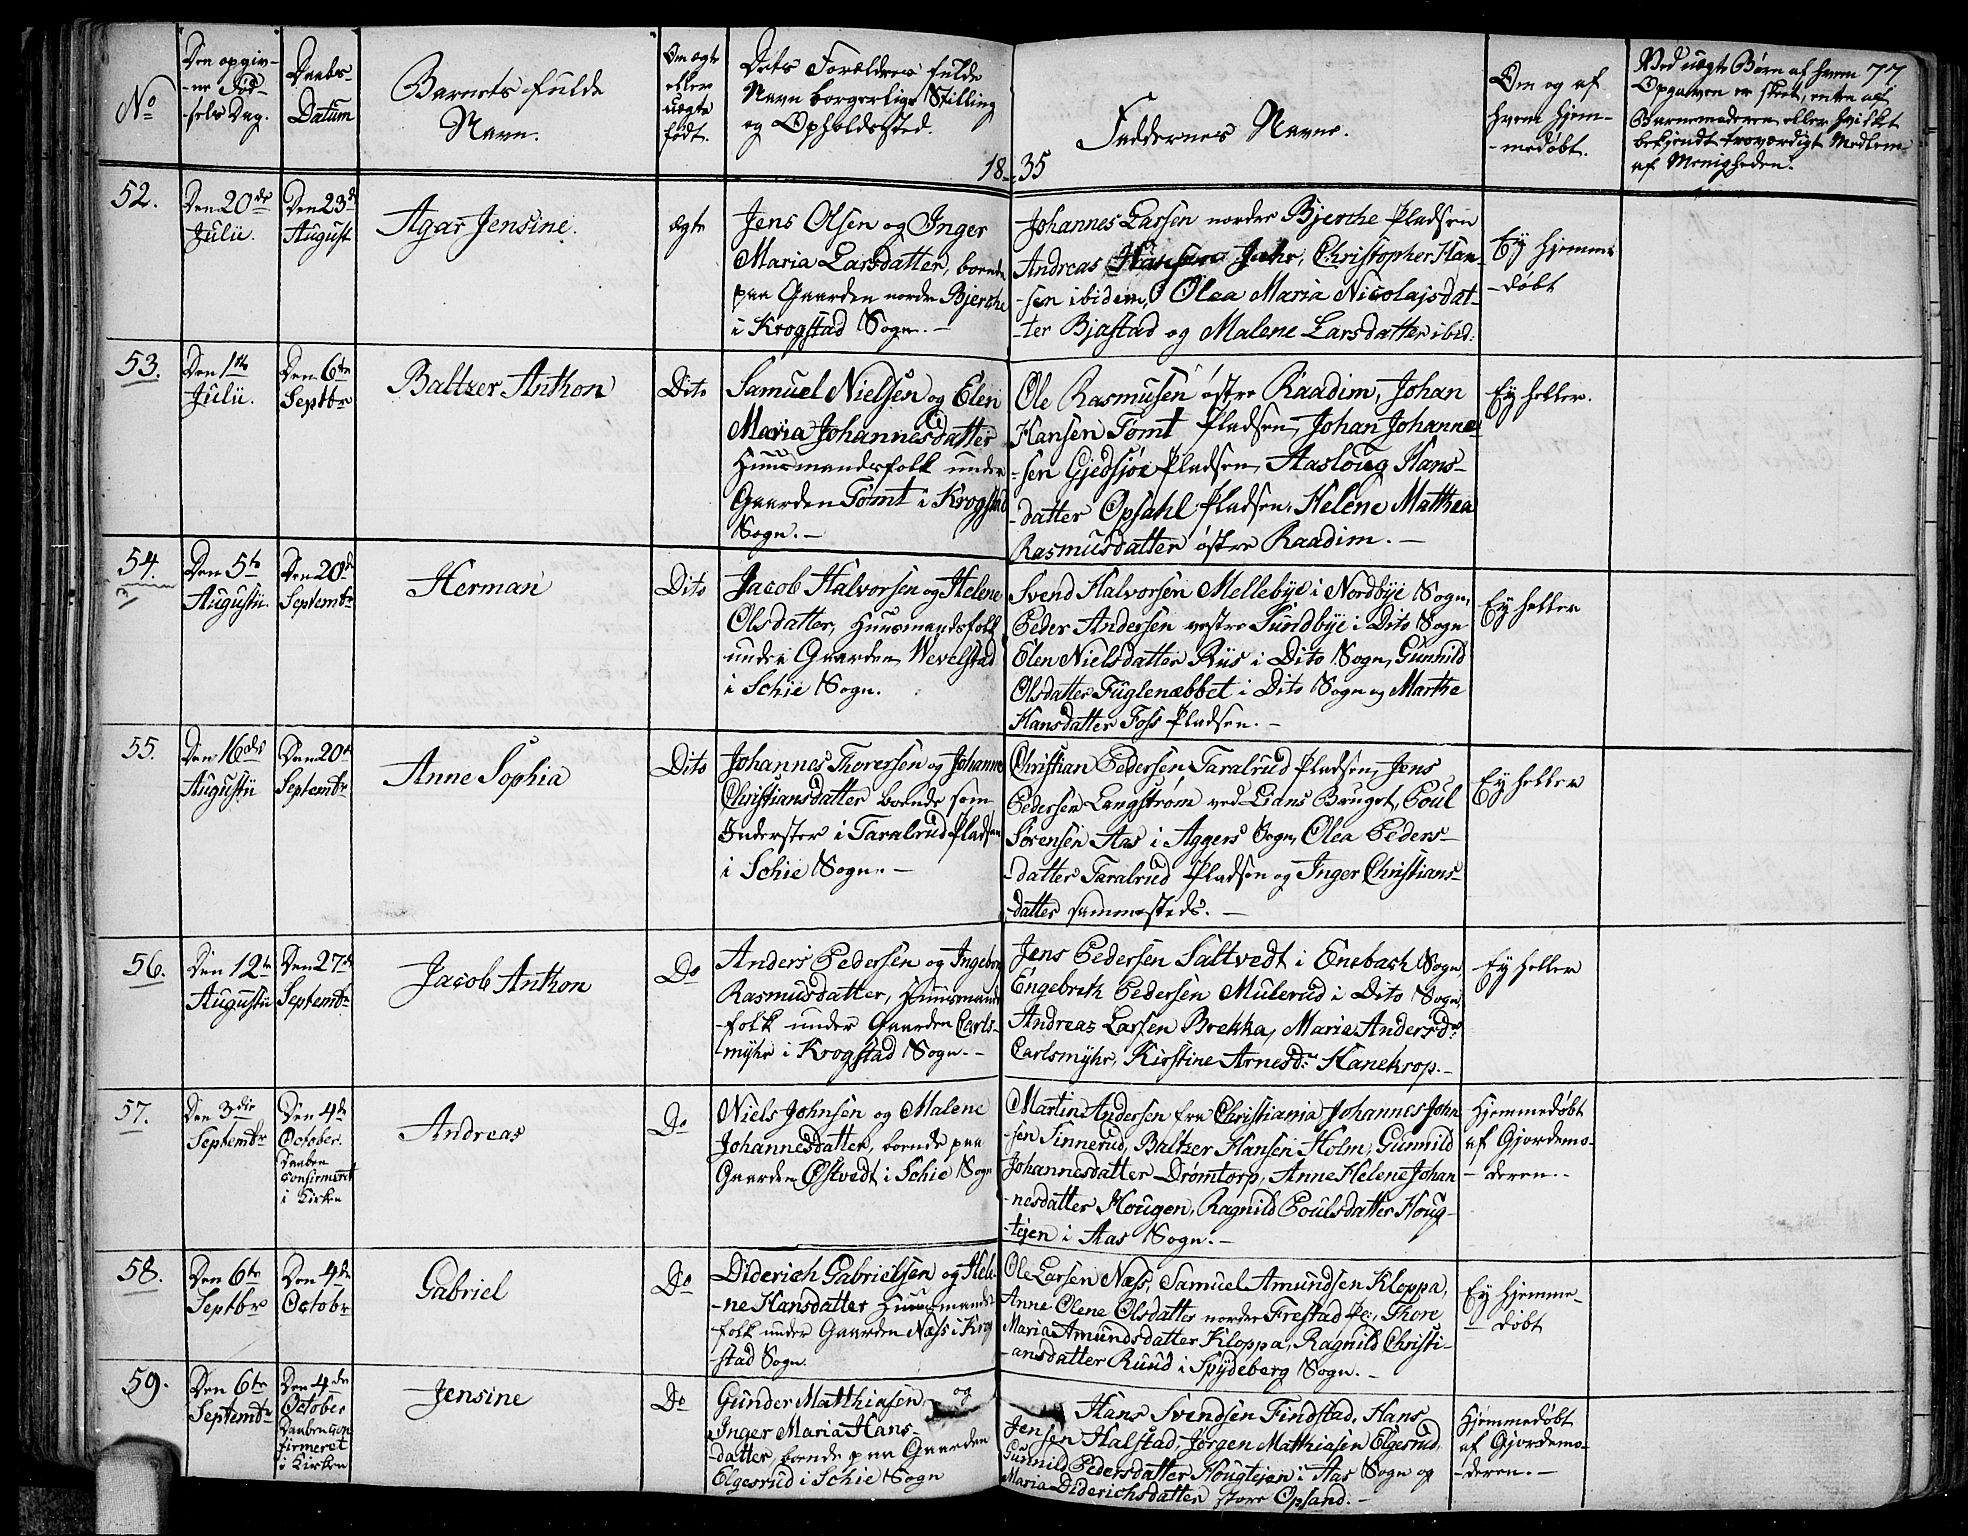 No
Den opgiv-
-ne Fød-
-sels Dag.
Daabs-
Datum
Barnets fulde
Navn.
Om ægte
eller
uægte
født.
Dets Forældres fulde
Navn borgerlige Stilling
og Opholdssted.
Faddernes Navne.
Om og af
hvem hjem-
-medøbt.
Ved uægte Børn af hvem
Opgaven er skeet, enten af
Barnemoderen eller hvilket
bekjendt troværdigt Medlem
af Menigheden.
77
18-35
52.
Den 20de
Julii.
Den 23d
August
Agar Jensine.
ægte
Jens Olsen og Inger
Maria Larsdatter, boende
paa Gaarden nordre Bjerche
i Krogstad Sogn.-
Johannes Larsen nordre Bjerche Pladsen
Andreas Hansen Jahr, Christopher Han-
-sen ibidem, Olea Maria Nicolajsdat-
-ter Bjastad og Malene Larsdatter ibid:
Ey hjemme
-døbt
53.
Den 1ste
Julii.
Den 6te
Septbr
Baltzer Anthon
Dito
Samuel Nielsen og Elen
Maria Johannesdatter
Huusmandsfolk under
Gaarden Tømt i Krogstad
Sogn.-
Ole Rasmusen østre Raadim, Johan
Hansen Tømt Pladsen, Johan Johanne-
-sen Gjedsjøe Pladsen, Aasloug Hans-
-datter Opsahl Pladsen, Helene Mathea
Rasmusdatter østre Raadim.-
Ey heller.
54.
Den 5te
Augustii.
Den 20d
Septembr
Herman
Dito
Jacob Halvorsen og Helene
Olsdatter, Huusmandsfolk
under Gaarden Wevelstad
i Schie Sogn.
Svend Halvorsen Mellebye i Nordbye Sogn,
Peder Andersen vestre Sundbye i Dito Sogn
Elen Nielsdatter Riis i Dito Sogn, Gunnild
Olsdatter Fuglenæbbet i Dito Sogn og Marthe
Hansdatter Foss Pladsen.-
Ey heller
55.
Den 16de
Augustii
Den 20d
Septembr
Anne Sophia
Dito
Johannes Thorersen og Johanne
Christiansdatter boende som
Inderster i Taralrud Pladsen
i Schie Sogn.-
Christian Pedersen Taralrud Pladsen, Jens
Pedersen Langstrøm ved Lians Bruget, Poul
Sørensen Aas i Aggers Sogn, Olea Peders-
-datter Taralrud Pladsen og Inger Christians-
-datter sammesteds.-
Ey heller
56.
Den 12te
Augustii
Den 27d
Septembr
Jacob Anthon
Do
Anders Pedersen og Ingeborg
Rasmusdatter, Huusmands
-folk under Gaarden Carls-
-myhr i Krogstad Sogn.-
Jens Pedersen Saltvedt i Enebach Sogn
Engebrith Pedersen Mulerud i Dito Sogn,
Andreas Larsen Brekka, Marie Andersdr
Carlsmyhr, Kirstine Arnesdr Hanekrop.-
Ey heller
57.
Den 3die
Septembr
Den 4de
October.
Daaben
confirmeret
i Kirken
Andreas
Do
Niels Johnsen og Malene
Johannesdatter, boende paa
Gaarden Østvedt i Schie Sogn
Martin Andersen fra Christiania Johannes John
-sen Finnerud, Baltzer Hansen Holm, Gunnild
Johannesdatter Drømtorp, Anne Helene Johan
-nesdatter Hougen, Ragnild Poulsdatter Houg-
-tejen i Aas Sogn.-
Hjemmedøbt
af Gjordemo-
-deren.-
58.
Den 6te
Septbr
Den 4de
Octobr
Gabriel
Do
Diderich Gabrielsen og Hele-
-ne Hansdatter Huusmands
folk under Gaarden Næss i Krog
-stad Sogn.
Ole Larsen Næss, Samuel Amundsen Kloppa,
Anne Olene Olsdatter nordre Frestad Pe:, Thore
Maria Amundsdatter Kloppa, Ragnild Christi-
-ansdatter Ruud i Spydeberg Sogn.-
Ey hjemme-
-døbt
59.
Den 6te
Septembr
Den 4de
October
Daaben con
firmeret
i Kirken
Jensine
Do
Gunder Matthiasen og
Inger Maria Hans-
-datter, boende paa Gaarden
Elgesrud i Schie Sogn
Hans Svendsen Findstad, Hans
Jensen Halstad, Jørgen Matthiasen Elgesrud,
Gunnild Pedersdatter Hougtejen i Aas Sogn og
Maria Diderichsdatter store Opsand.-
Hjemmedøbt
af Gjordemo-
-deren.-